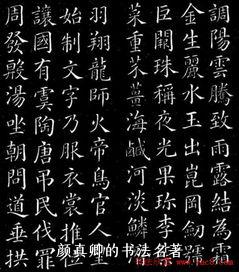 調陽雲騰致雨露結為霜
金生麗水玉出崑岡劍號
巨闕珠稱夜光果珍李柰
菜重芥薑海鹹河淡鱗潛
羽翔龍師火帝鳥官人皇
始制文字乃服衣裳推位
讓國有虞陶唐弔民伐罪
周發殷湯坐朝問道垂拱
颜真卿的书法名著